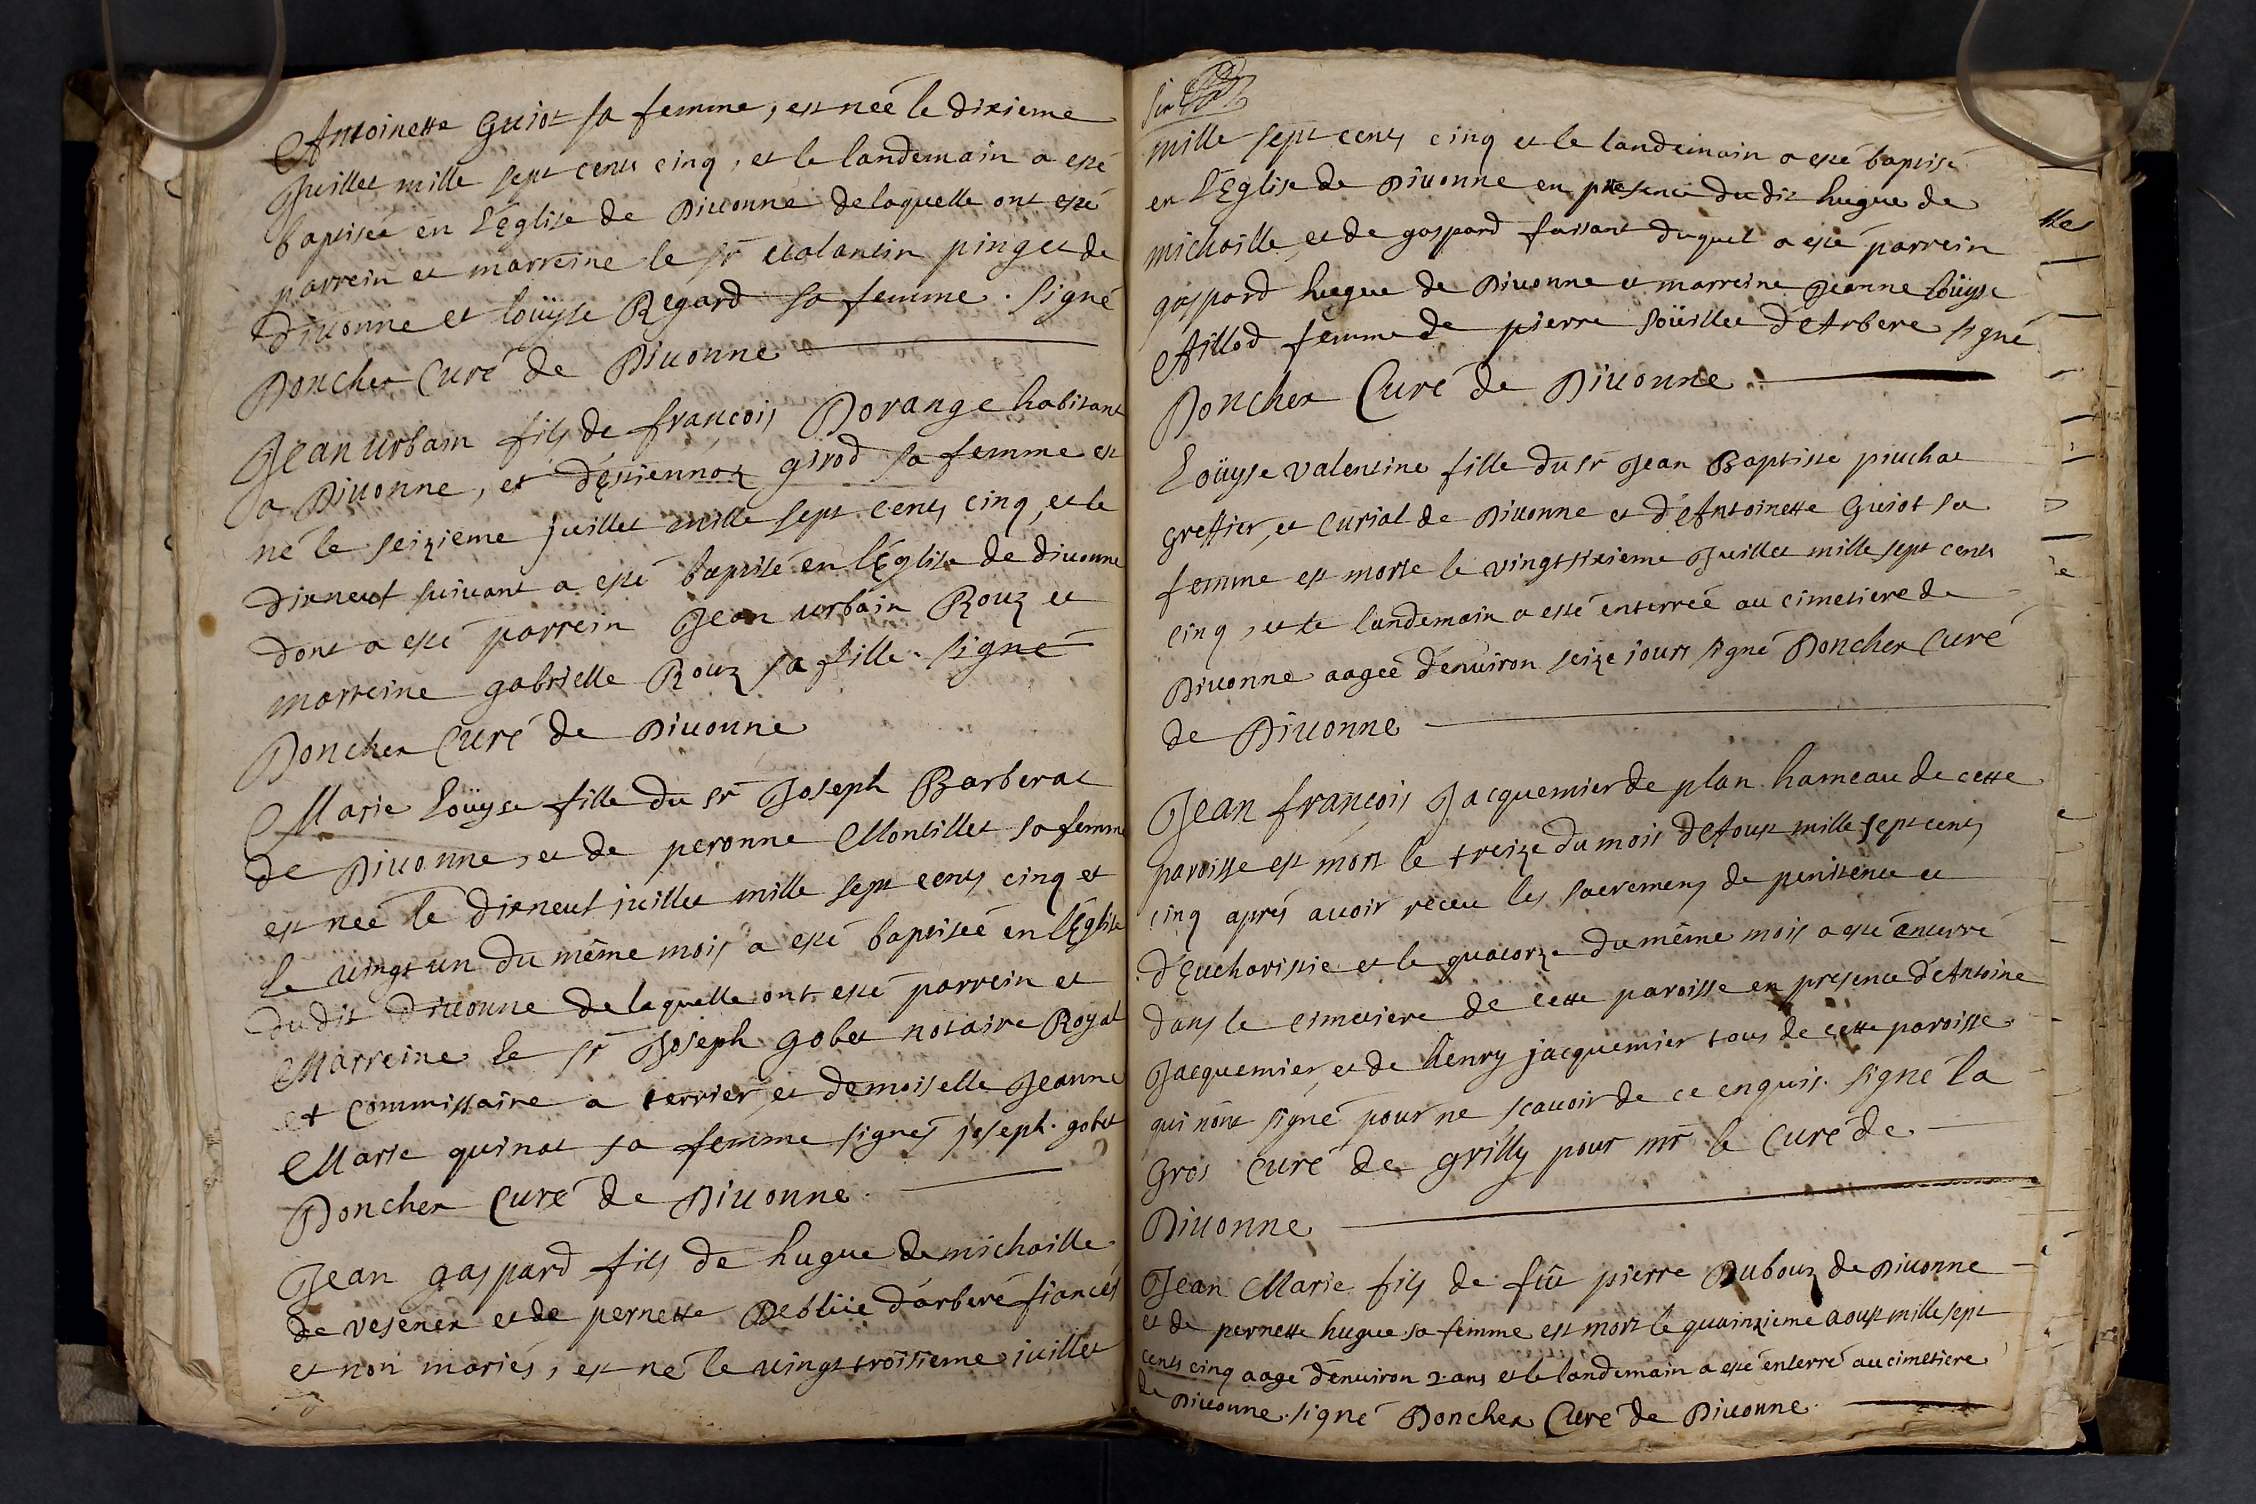 Antoinette Guiot sa femme, est neé le dixieme
Juillet mille sept cents cinq, et le landemain a esté
baptiseé en l'Église de Diuonne de laquelle ont esté
parrein et marreine le sr Valantin pinget de
diuonne et loüyse Regard sa femme. signé
Doncher Curé de Diuonne
Jean urbain fils de francois Dorange habitant
a Diuonne, et d'éstiennoz girod sa femme est
né le seizieme juillet mille sept cents cinq, et le
dixneuf suivant a esté baptisé en l'Église de diuonne
dont a esté parrein Jean urbain Rouz et
marreine gabrielle Rouz sa fille. signé
Doncher Curé de Diuonne
Marie loüyse fille du sr Joseph Barberat
de Diuonne, et de peronne Montillet sa femme
est neé le dixneuf juillet mille sept cents cinq et
le uingt un du même mois a esté baptiseé en l'Église
dudit diuonne de laquelle ont esté parrein et
Marreine le sr Joseph gobet notaire Royal
et Commissaire a terrier et demoiselle Jeanne
Marie quinat sa femme signés joseph. gobet
Doncher Curé de Diuonne.
Jean gaspard fils de hugue de michaille
de vesenex et de pernette Deblüe d'arbere fiancés
et non mariés, est né le uingt troisieme juillet
mille sept cents cinq et le landemain a esté baptisé
en l'Eglise de Diuonne en presence dudit hugue de
michaille et de gaspard faissant duquel a esté parrein
gaspard hugue de Diuonne et marreine Jeanne loüyse
Aillod femme de pierre Soüillet d'Arbere signé
Doncher Curé de Diuonne.
Loüyse valentine fille du sr Jean Baptiste piuchat
greffier, et curial de Diuonne et d'Antoinette Guiot sa
femme est morte le vingt sixieme Juillet mille sept cents
cinq, et le landemain a esté enterreé au cimetiere de
Diuonne aageé d'enuiron seize jours signé Doncher Curé
de Diuonne
Jean francois Jacquemier de plan hameau de cette
paroisse est mort le treize du mois d'Aoust mille sept cents
cinq aprés auoir receu les sacremens de penitence et
d'Eucharistie et le quatorze du même mois a esté enterré
dans le cimetiere de cette paroisse en presence d'Antoine
Jacquemier, et de henry jacquemier tous de cette paroisse
qui n'ont signé pour ne scauoir de ce enquis. signé la
Gros Curé de grilly pour mr le Curé de
Diuonne
Jean Marie fils de feu pierre Dubouz de Diuonne
et de pernette hugue sa femme est mort le quainzieme aoust mille sept
cents cinq aagé d'enuiron 2. ans et le landemain a esté enterré au cimetiere
de Diuonne. signé Doncher Curé de Diuonne.